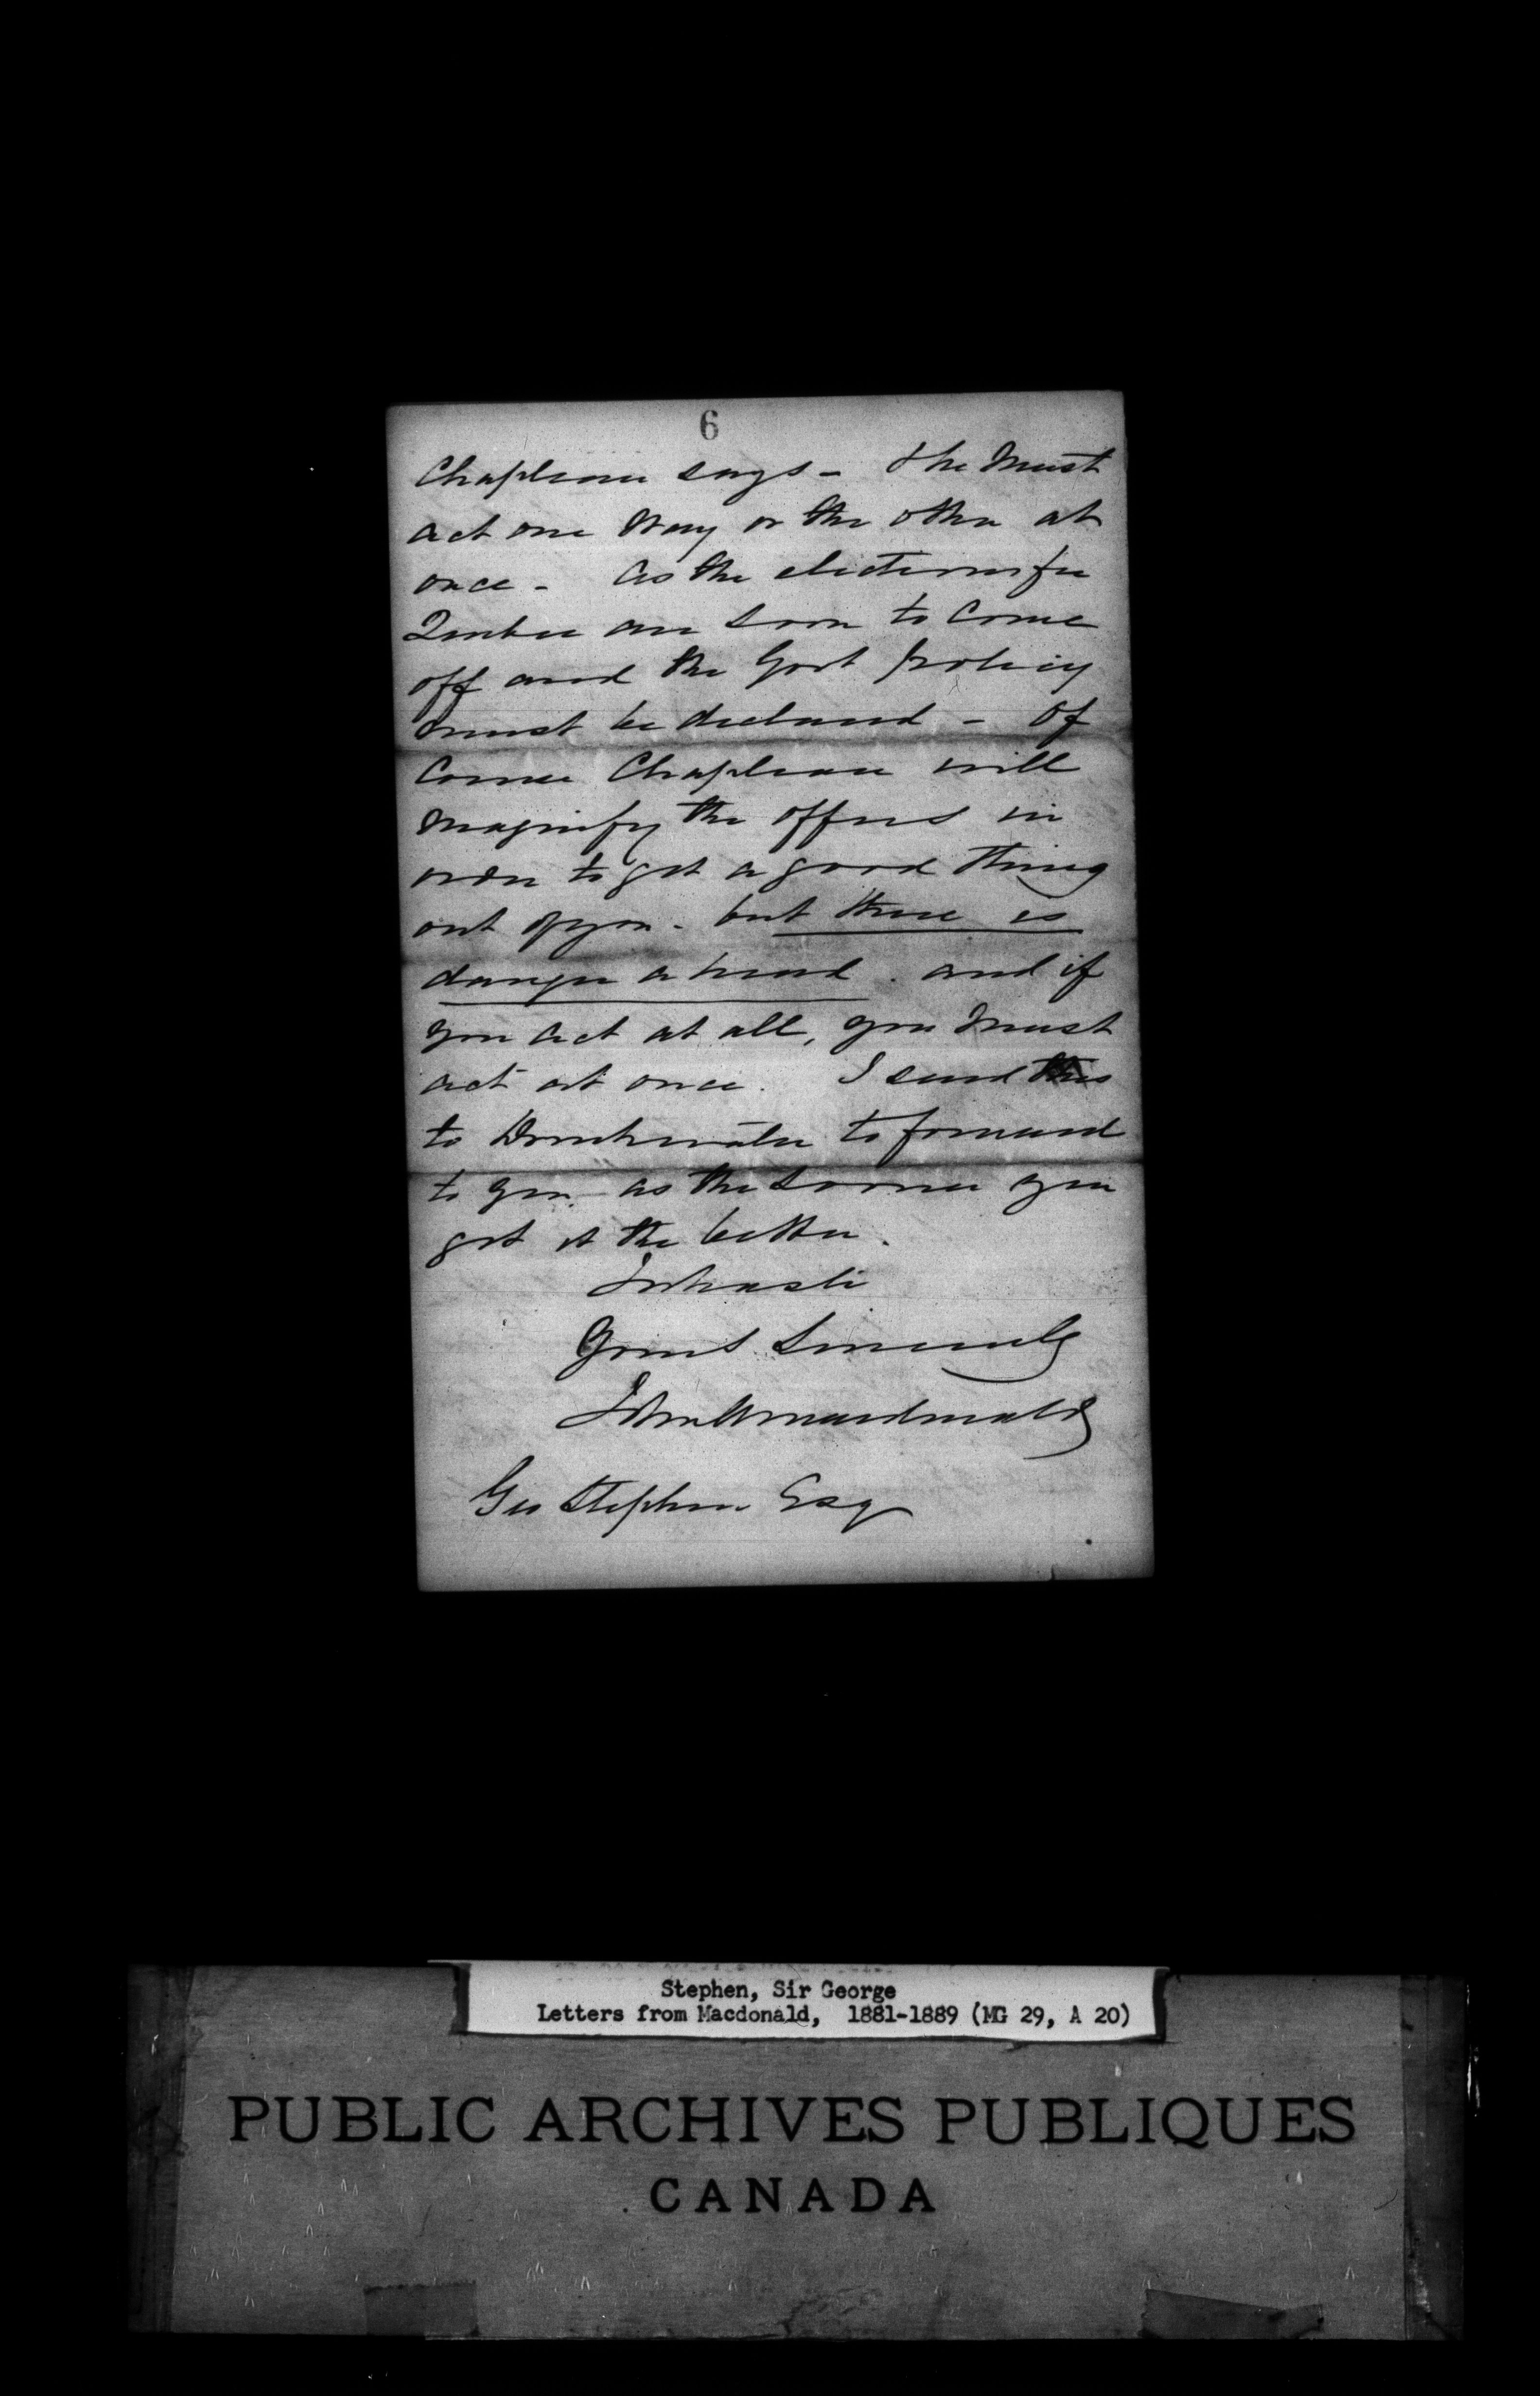 6
Chapleau says - & he must
act one way or the other at
once - As the elections for
Quebec are soon to come
off and the Govt policy
must be declared - Of
course Chapleau will
magnify the offers in
order to get a good thing
out of you - but there is
danger ahead. and if
you act at all, you must
act at once. I send this
to Drinkwater to forward
to you as the sooner you
get it the better.
In haste
Yours Sincerely
John A Macdonald
Geo Stephen Esq
Stephen, Sir George
Letters from Macdonald, 1881-1889 (MG 29, A 20)
PUBLIC ARCHIVES PUBLIQUES
CANADA